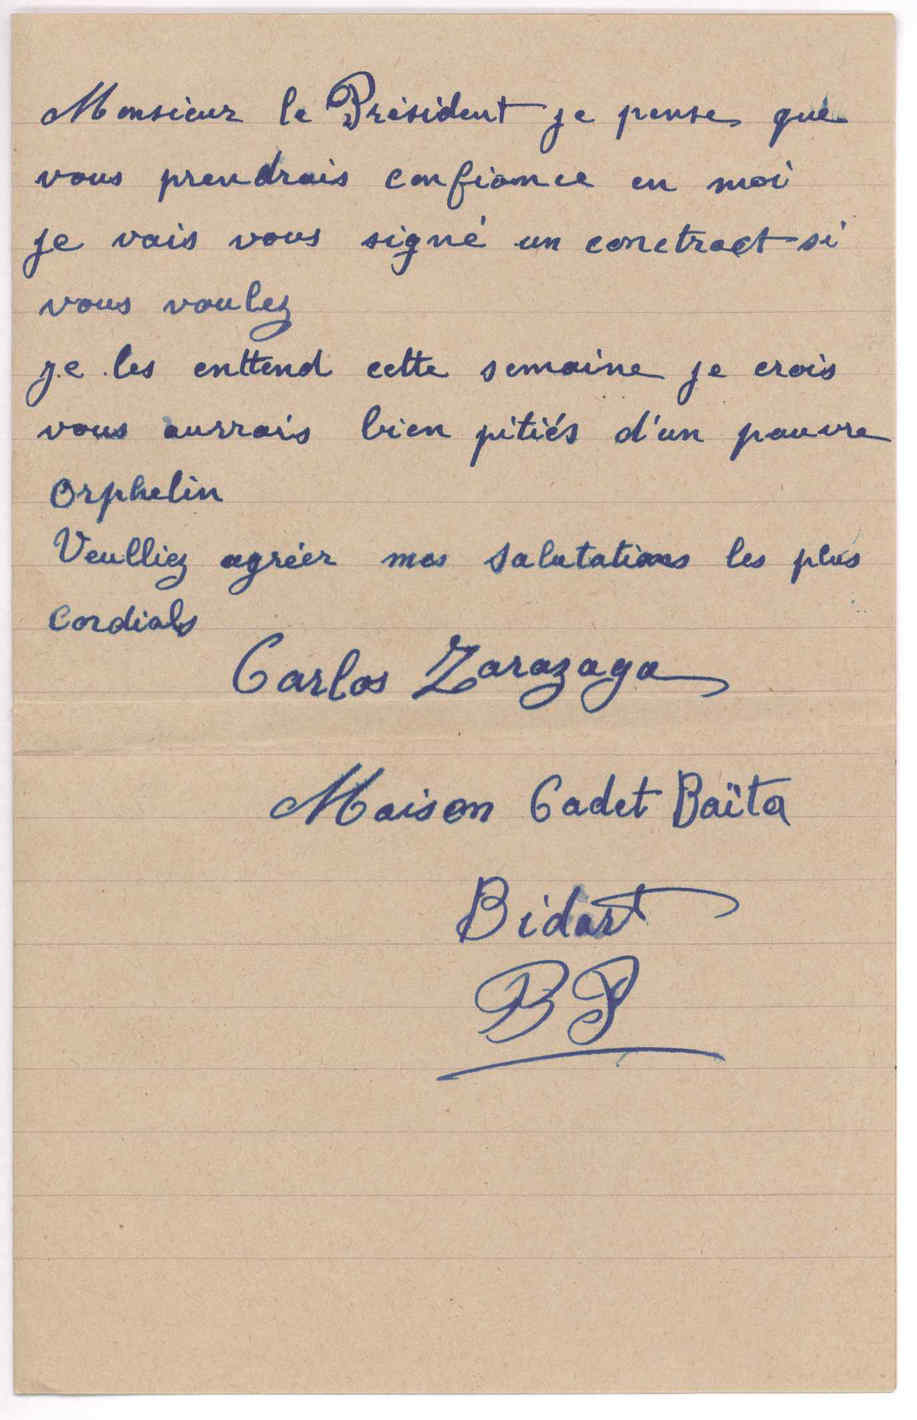 Monsieur le Président je pense que
vous prendrais confiance en moi
je vais vous signé un conctract si
vous voulez
je les enttend cette semaine je crois
vous aurrais bien pitiés d'un pauvre
Orphelin
Veulliez agréer mes salutations les plus
Cordials
Carlos Zarazaga
Maison Cadet Baïta
Bidart
BP